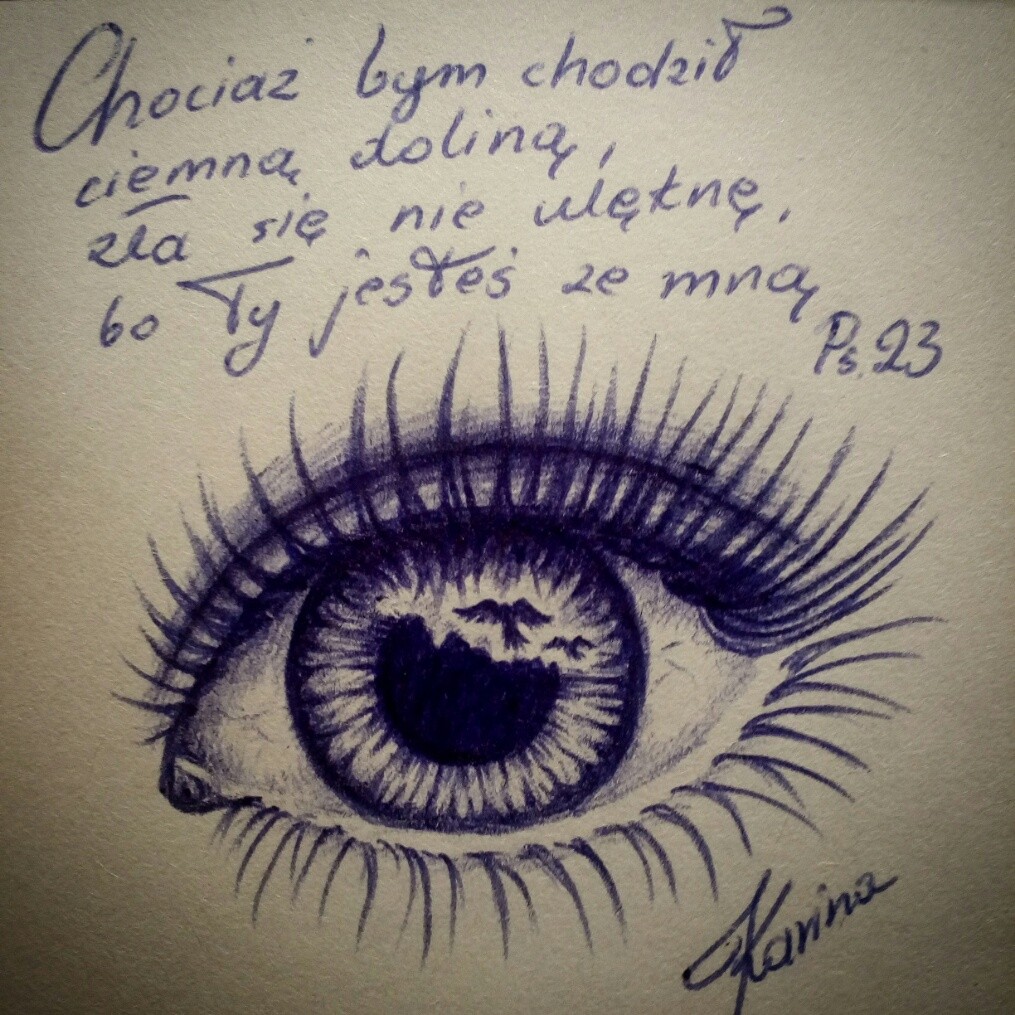 Chociaż bym chodził
ciemną doliną,
zła się nie ulęknę,
bo Ty jesteś ze mną
Ps.23
Karina